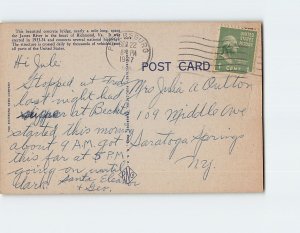 This beautiful concrete bridge, nearly a mile long, spans
the James River in the heart of Richmond, Va. It was
carried in 1933-34 and connects several national highways.
The structure is crossed daily by thousands of vehicles from
all parts of the United States.
POST CARD
22
PM
1947
Hi Julie
Stopped at Fred
last night had
supper at
started this morning
about 9 A.M. got
this far at 5 PM
going on until
dark. Santa, Eleanor
+ Geo.
Mrs Julia A Outton
109 Middle Ave
Saratoga Springs
N.Y.